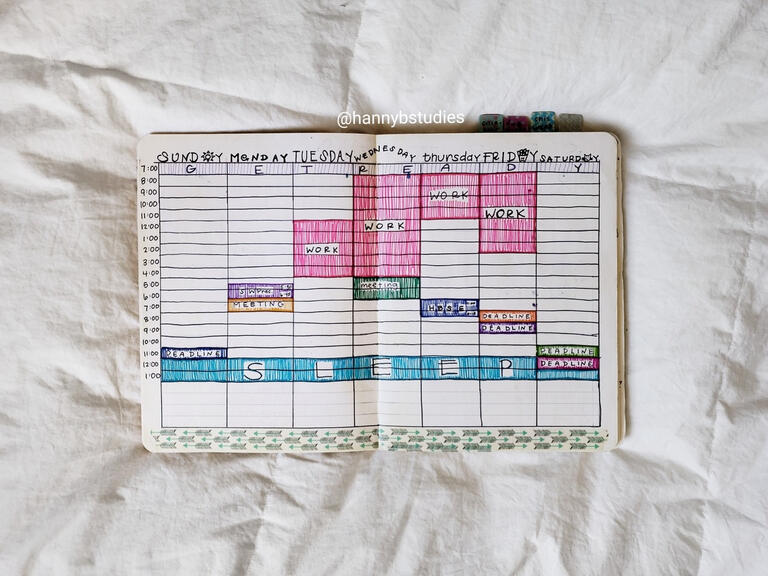 @hannybstudies
SUNDAY MONDAY TUESDAY WEDNESDAY thursday FRIDAY SATURDAY
7:00 G E T R E A D Y
8:00
9:00 WORK
10:00
11:00 WORK
12:00 WORK
1:00
2:00 WORK
3:00
4:00
5:00 meeting
6:00
7:00 MEETING
8:00 DEADLINE
9:00 DEADLINE
10:00
11:00 DEADLINE DEADLINE
12:00 S L E E P DEADLINE
1:00